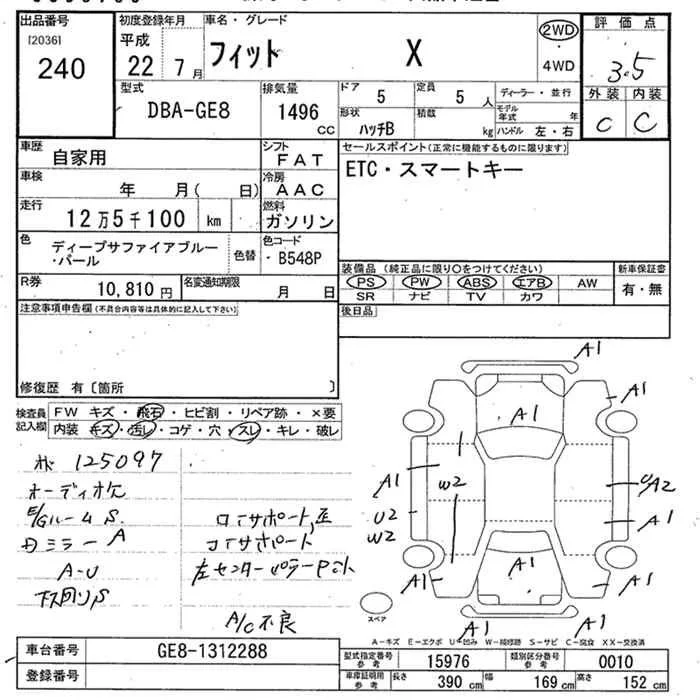 出品番号
[2036]
240
初度登録年月
平成
22 7月
車名・グレード
フィット X
2WD
・
4WD
評価点
3.5
外装 内装
C C
型式
DBA-GE8
排気量
1496
CC
ドア
5
定員
5 人
形状
ハッチB
積載
kg
ディーラー・並行
モデル年式 年
ハンドル 左・右
車歴
自家用
シフト
FAT
車検
年 月( 日)
冷房
AAC
走行
12万5千100 km
燃料
ガソリン
色
ディープサファイアブルー
・パール
色替
色コード
・B548P
R券
10,810円
名変通知期限
月 日
セールスポイント(正常に機能するものに限ります)
ETC・スマートキー
装備品(純正品に限り○をつけてください)
PS PW ABS エアB AW
SR ナビ TV カワ
新車保証書
有・無
後日品
注意事項申告欄(不具合内容等は具体的に記入して下さい)
修復歴 有〔箇所 〕
検査員
記入欄
FW キズ・飛石・ヒビ割・リペア跡・×要
内装 キズ・汚レ・コゲ・穴・スレ・キレ・破レ
125097
オーディオ
E/Gルーム S
ミラー A
A-U
下回りS
コアサポート歪
コアサポート
左センターピラー
A/C不良
A1
A1
A1
A1
W2
U2
W2
A2
A1
A1
A1
A1
A1
A1
スペア
A-キズ E-エクボ U-凹み W-補修跡 S-サビ C-腐食 XX-交換済
車台番号
GE8-1312288
登録番号
型式指定番号
参考
15976
類別区分番号
参考
0010
車庫証明用
参考
長さ
390 cm
幅
169 cm
高さ
152 cm